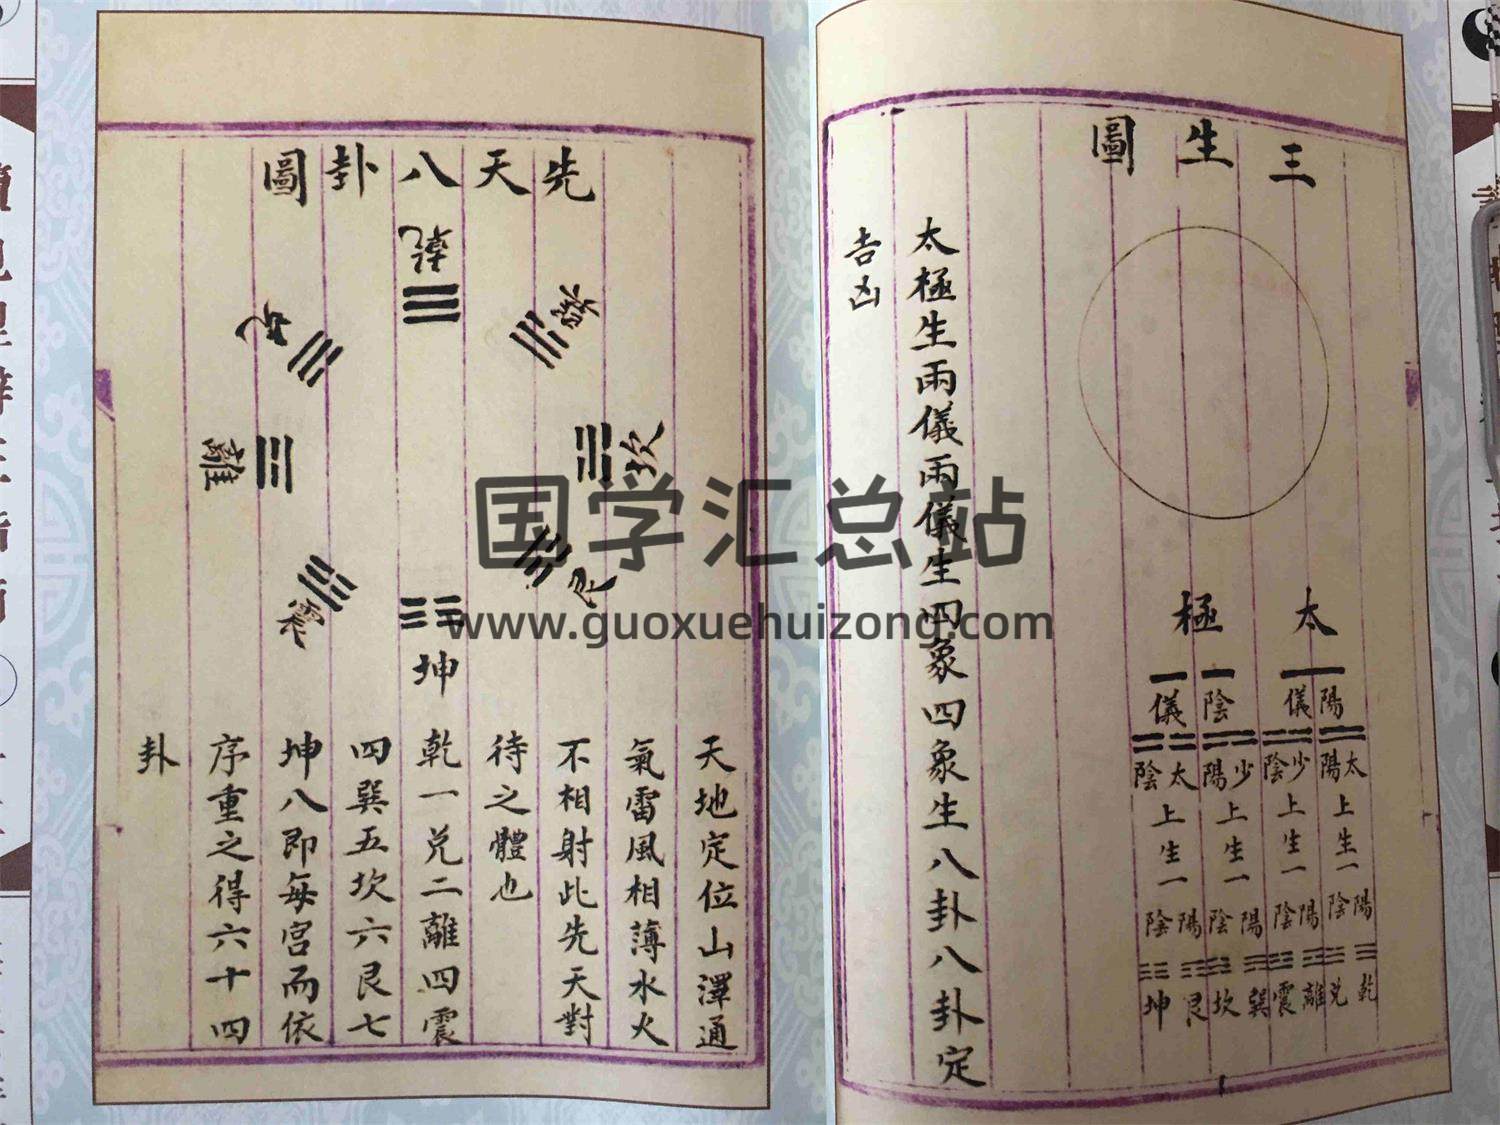 三生圖
太極
陽儀
陰儀
太陽
少陰
少陽
太陰
上生一陽陰
上生一陽陰
上生一陽陰
上生一陽陰
乾
兌
離
震
巽
坎
艮
坤
太極生兩儀兩儀生四象四象生八卦八卦定
吉凶
先天八卦圖
乾
兌
離
震
巽
坎
艮
坤
天地定位山澤通
氣雷風相薄水火
不相射此先天對
待之體也
乾一兌二離四震
四巽五坎六艮七
坤八即每宮而依
序重之得六十四
卦
国学汇总站
www.guoxuehuizong.com